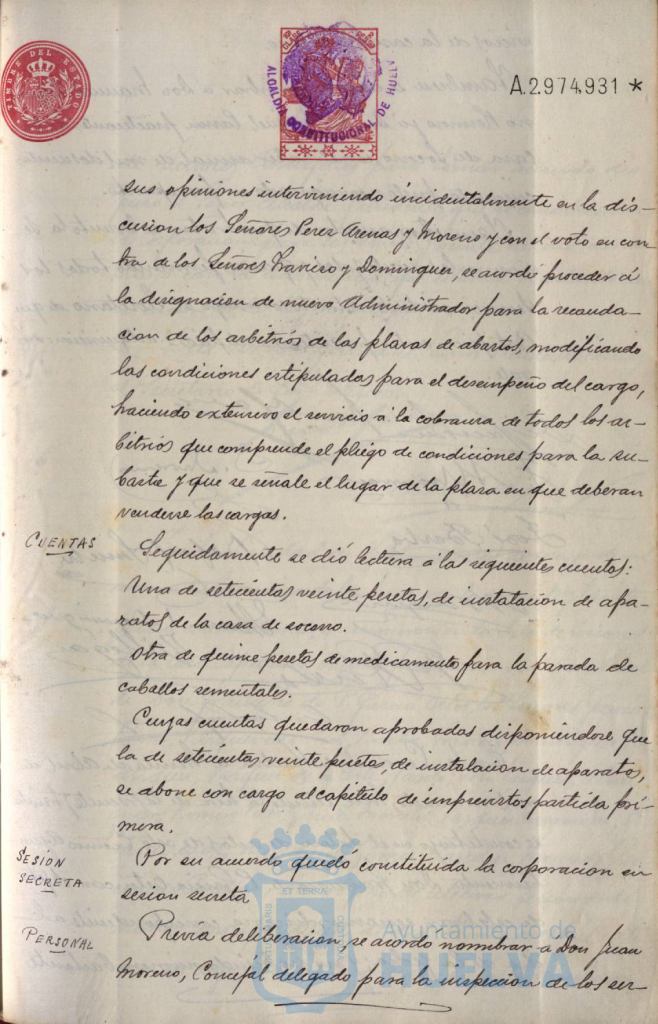 TIMBRE DEL ESTADO
ALCALDIA CONSTITUCIONAL DE HUELVA
A.2.974.931 *
sus opiniones interviniendo incidentalmente en la dis-
cusion los Señores Perez Arenas y Moreno y con el voto en con-
tra de los Señores Travieso y Dominguez, se acordó proceder á
la disignacion de nuevo Administrador para la recauda-
cion de los arbitrios de las plazas de abastos, modificando
las condiciones estipuladas para el desempeño del cargo,
haciendo extensivo el servicio á la cobranza de todos los ar-
bitrios que comprende el pliego de condiciones para la su-
basta y que se señale el lugar de la plaza en que deberan
venderse las cargas.
CUENTAS
Seguidamente se dió lectura á las siguientes cuentas:
Una de setecientas veinte pesetas, de instalacion de apa-
ratos de la casa de socorro.
Otra de quince pesetas de medicamento para la parada de
caballos sementales.
Cuyas cuentas quedaron aprobadas disponiendose que
la de setecientas veinte pesetas, de instalacion de aparatos,
se abone con cargo al capitulo de imprevistos partida pri-
mera.
SESIÓN
SECRETA
Por su acuerdo quedó constituida la corporacion en
sesion secreta
PERSONAL
Previa deliberacion, se acordo nombrar a Don Juan
Moreno, Concejal delegado para la inspeccion de los ser-
ET TERRAE
Ayuntamiento de
HUELVA